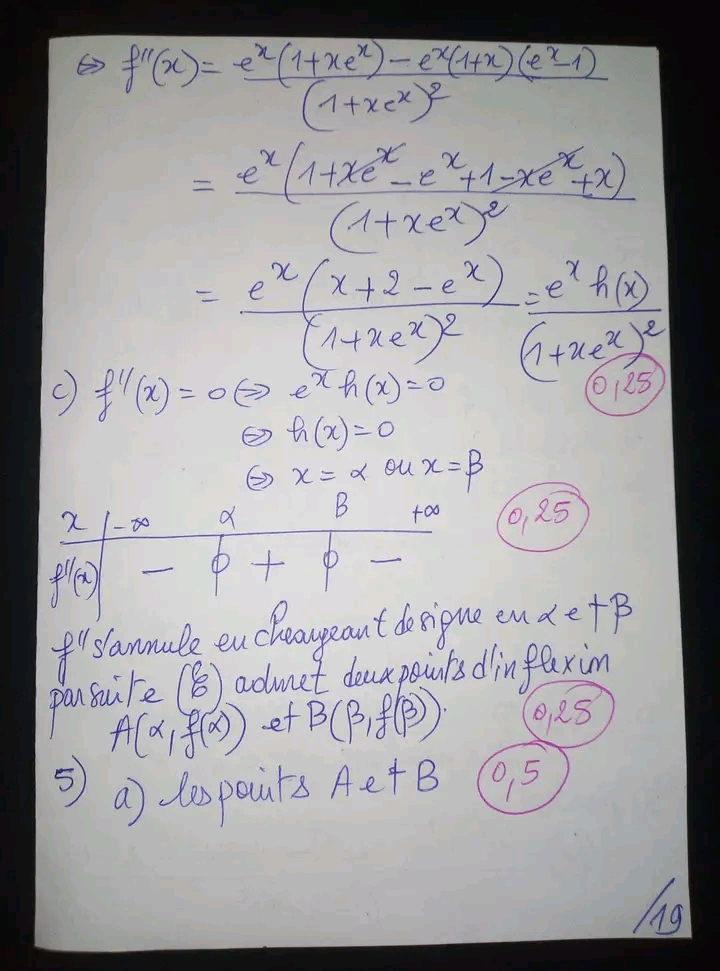 ⇔ f''(x) = e^x(1+xe^x) − e^x(1+x)(e^x−1) / (1+xe^x)^2
= e^x(1+xe^x − e^x+1−xe^x+x) / (1+xe^x)^2
= e^x(x+2−e^x) / (1+xe^x)^2 = e^x h(x) / (1+xe^x)^2
0,25
c) f''(x) = 0 ⇔ e^x h(x) = 0
⇔ h(x) = 0
⇔ x = α ou x = β
x | −∞ α β +∞
0,25
f''(x) | − 0 + 0 −
f'' s'annule en changeant de signe en α et β
par suite (ℭ) admet deux points d'inflexion
A(α, f(α)) et B(β, f(β)).
0,25
5) a) les points A et B
0,5
/19